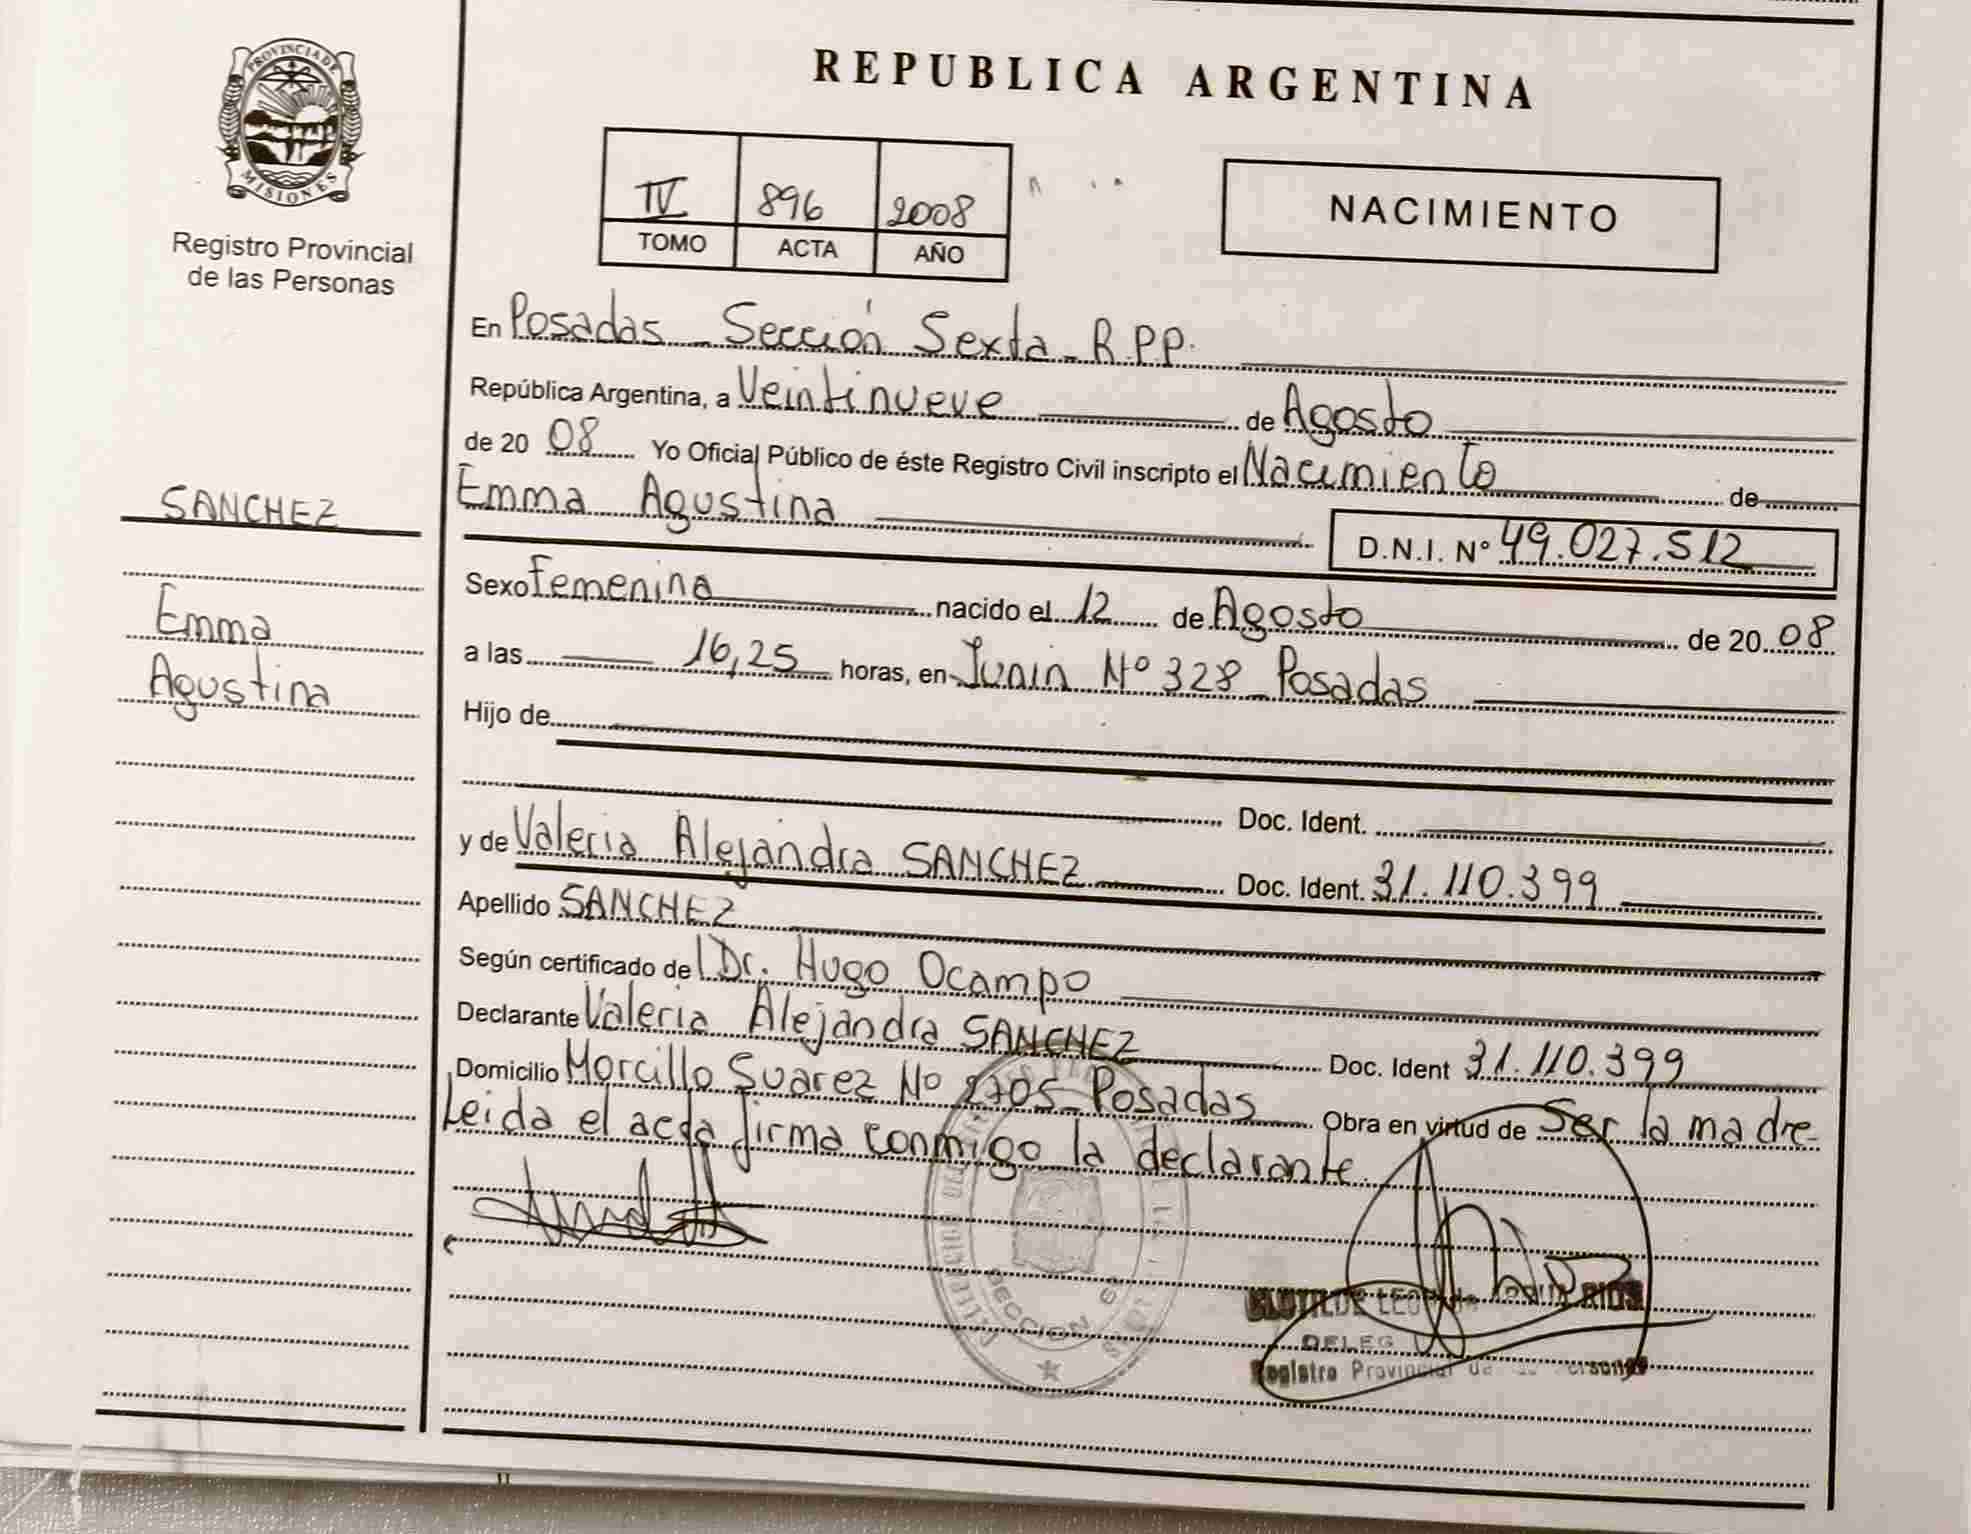 PROVINCIA DE
MISIONES
Registro Provincial
de las Personas
SANCHEZ
Emma
Agustina
REPUBLICA ARGENTINA
IV 896 2008
TOMO ACTA AÑO
NACIMIENTO
En Posadas - Sección Sexta - R.P.P.
República Argentina, a Veintinueve de Agosto
de 20 08 Yo Oficial Público de éste Registro Civil inscripto el Nacimiento de
Emma Agustina
D.N.I. Nº 49.027.512
Sexo Femenina nacido el 12 de Agosto de 20 08
a las 16,25 horas, en Junin Nº 328 - Posadas
Hijo de
Doc. Ident.
y de Valeria Alejandra SANCHEZ Doc. Ident. 31.110.399
Apellido SANCHEZ
Según certificado del Dr. Hugo Ocampo
Declarante Valeria Alejandra SANCHEZ Doc. Ident 31.110.399
Domicilio Morcillo Suarez Nº 2705 - Posadas Obra en virtud de Ser la madre -
Leida el acta firma conmigo la declarante.
SECCION
CLOTILDE RIOS
DELEG
Registro Provincial de